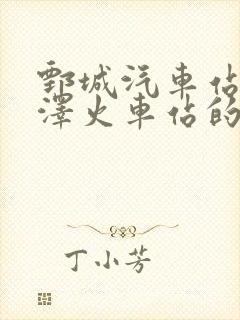 鄄城汽車佔
澤火車佔的
丁小芳